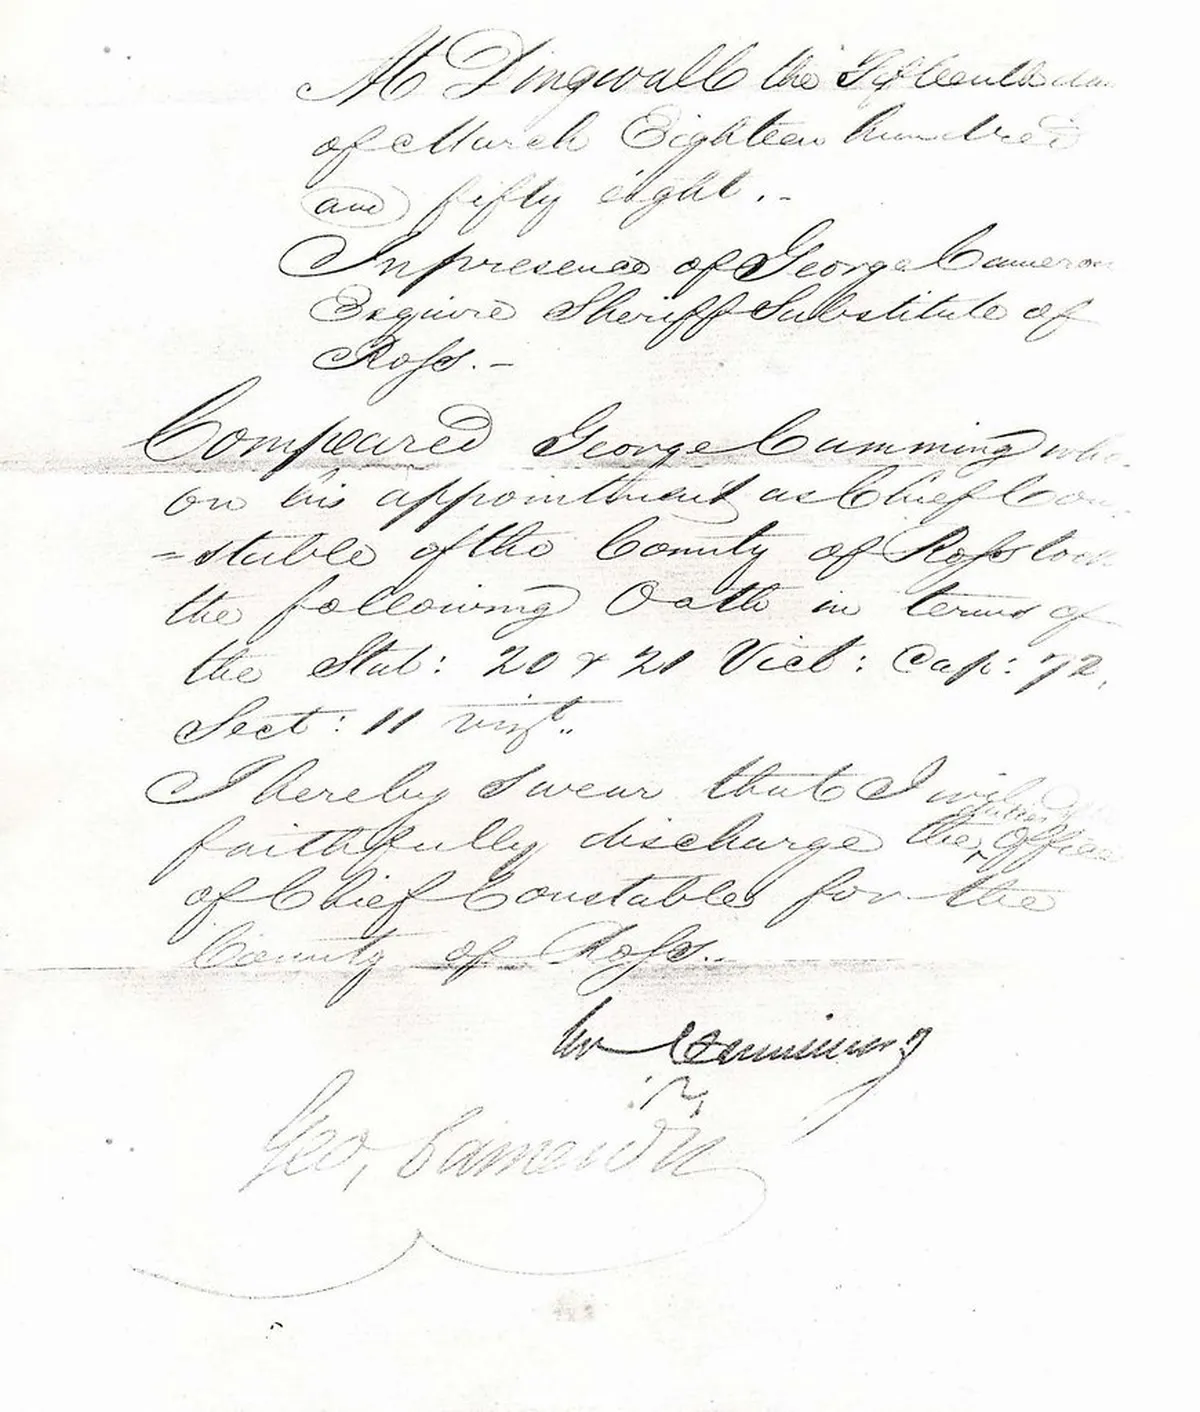 At Dingwall the Fifteenth day
of March Eighteen hundred
and fifty eight . -
In presence of George Cameron
Esquire Sheriff Substitute of
Ross . -
Compeared George Cumming who
on his appointment as Chief Con
= stable of the County of Ross took
the following Oath in terms of
the Stat : 20 & 21 Vict : Cap : 72 ,
Sect : 11 vizt ..
I hereby swear that I will
faithfully discharge the Office
of Chief Constable for the
County of Ross . -
Geo Cumming
Geo, Cameron